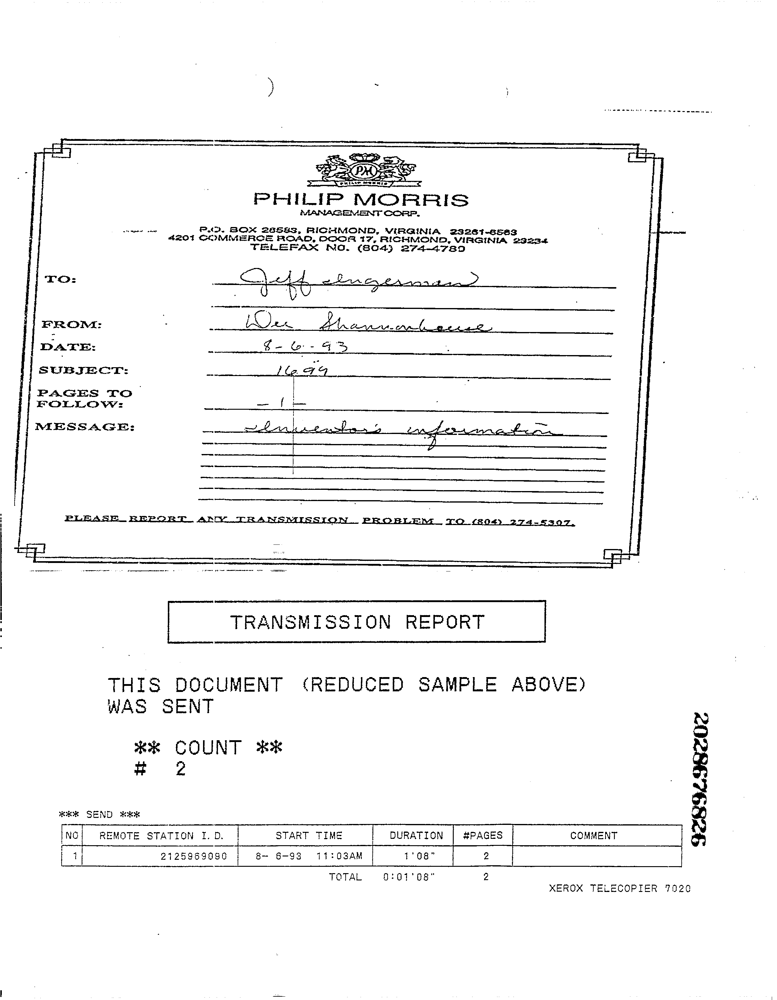 PM
PHILIP MORRIS
PHILIP MORRIS
MANAGEMENT CORP.
P.O. BOX 26583, RICHMOND, VIRGINIA 23261-6583
4201 COMMERCE ROAD, DOOR 17, RICHMOND, VIRGINIA 23234
TELEFAX NO. (804) 274-4789
TO: Jeff Ingerman
FROM: Dee Shannonhouse
DATE: 8-6-93
SUBJECT: 1699
PAGES TO
FOLLOW: - 1 -
MESSAGE: Inventor's information
PLEASE REPORT ANY TRANSMISSION PROBLEM TO (804) 274-5307.
TRANSMISSION REPORT
THIS DOCUMENT (REDUCED SAMPLE ABOVE)
WAS SENT
** COUNT **
# 2
*** SEND ***
NO REMOTE STATION I.D. START TIME DURATION #PAGES COMMENT
1 2125969090 8- 6-93 11:03AM 1'08" 2
TOTAL 0:01'08" 2
XEROX TELECOPIER 7020
2028676826